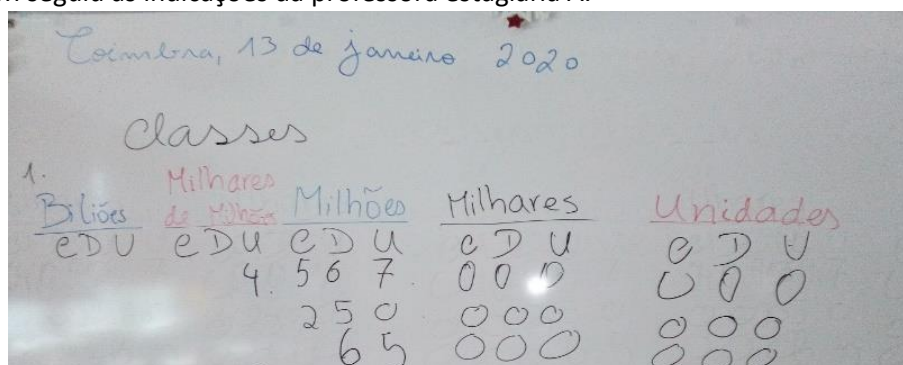 Coimbra, 13 de janeiro 2020
Classes
1.
Biliões Milhares de Milhões Milhões Milhares Unidades
C D U C D U C D U C D U C D U
4. 5 6 7 0 0 0 0 0 0
2 5 0 0 0 0 0 0 0
6 5 0 0 0 0 0 0